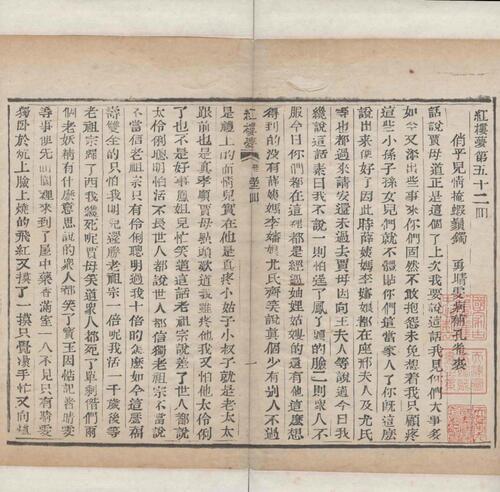 紅樓夢第五十二回
俏平兒情掩蝦鬚鐲 勇晴雯病補孔雀裘
話說賈母道正是這個了上次我要說這話我見你們大事多
如今又添出些事來你們固然不敢抱怨未免想着我只顧疼
這些小孫子孫女兒們就不體貼你們這當家人了你旣這麼
說出來更好了因此時薛姨媽李嬸娘都在座邢夫人及尤氏
等也都過來請安還未過去賈母因向王夫人等說道今日我
纔說這話素日我不說一則怕逞了鳳丫頭的臉二則眾人不
服今日你們都在這裡都是經過妯娌姑嫂的還有他這麼想
得到的沒有薛姨媽李嬸娘尤氏齊笑說眞個少有別人不過
紅樓夢
是禮上的面情兒實在他是真疼小姑子小叔子就是老太太
跟前也是真孝順賈母點頭歎道我雖疼他我又怕他太伶俐
了也不是好事鳳姐兒忙笑道這話老祖宗說差了世人都說
太伶俐聰明怕活不長世人都說世人都信獨老祖宗不當說
不當信老祖宗只有伶俐聰明過我十倍的怎麼如今這麼福
壽雙全的只怕我明兒還勝老祖宗一倍呢我活一千歲後等
老祖宗歸了西我纔死呢賈母笑道眾人都死了單剩偺們兩
個老妖精有什麼意思說的眾人都笑了寶玉因惦記着晴雯
等事便先回園裡來到了屋中藥香滿室一人不見只有晴雯
獨卧於炕上臉上燒的飛紅又摸了一摸只覺燙手忙又向爐